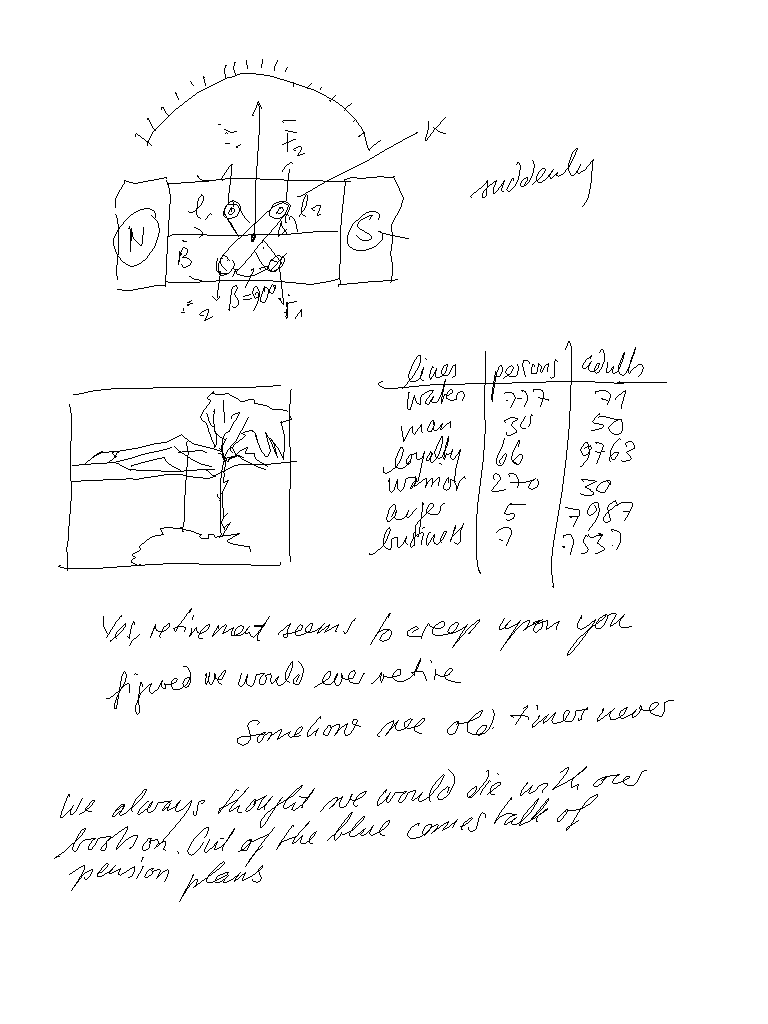 K
F̅₂
suddenly
l₁ l₂
N S
B̅
₂ B=90° F₁
lines persons adults
water 777 71
man 34 50
loyalty 66 9763
warrior 270 30
anger 5 7987
business 7 7537
Yes, retirement seems to creep upon you
figured we would ever retire
Somehow we old timers never
We always thought we would die with our
boots on. Out of the blue comes talk of
pension plans